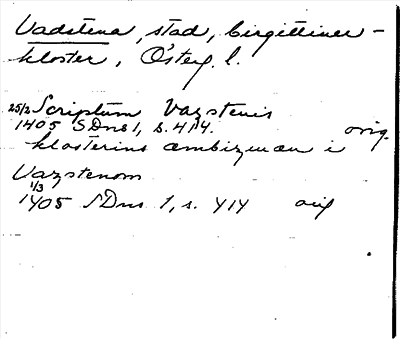 Vadstena, stad, birgittiner-
kloster, Österg. l.
25/2 Scriptum Vazstenis
1405 SDns 1, s. 414. orig.
klosterins ambizman i
Vazstenom
1/3
1405 SDns 1, s. 414 orig